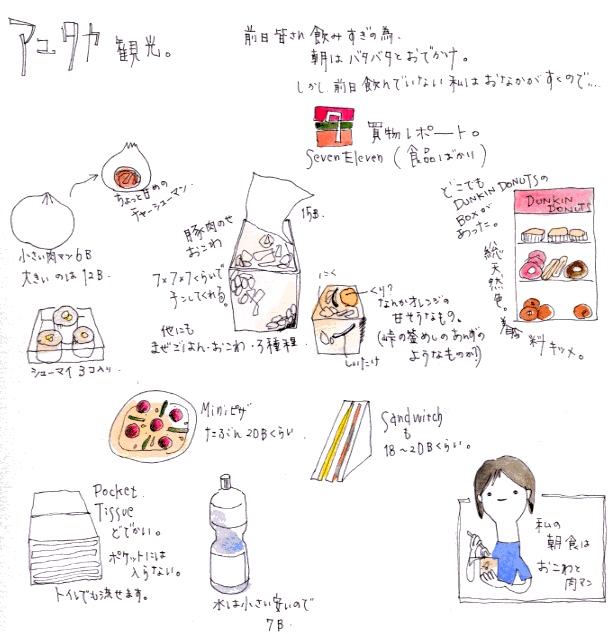 アユタヤ 観光。
前日皆さん飲みすぎの為、
朝はバタバタとおでかけ。
しかし、前日飲んでいない私はおなかがすくので…
買物レポート。
Seven Eleven (食品ばかり)
ちょっと甘めの
チャーシューマン。
小さい肉マン6B
大きいのは12B.
シューマイ 3コ入り。
豚肉のせ
おこわ
15B.
7×7×7くらいで
チンしてくれる。
他にも
まぜごはん・おこわ・3種程
にく
くり?
なんかオレンジの
甘そうなもの。
(峠の釜めしのあんずの
ようなものか?)
しいたけ
どこでも
DUNKIN DONUTSの
BOXが
あった。
総天然色。
着色料キツメ。
DUNKIN
DONUTS
Miniピザ
たぶん20Bくらい
Sandwitch
も
18〜20Bくらい。
Pocket
Tissue
どでかい。
ポケットには
入らない。
トイレでも流せます。
水は小さい安いので
7B.
私の
朝食は
おこわと
肉マン